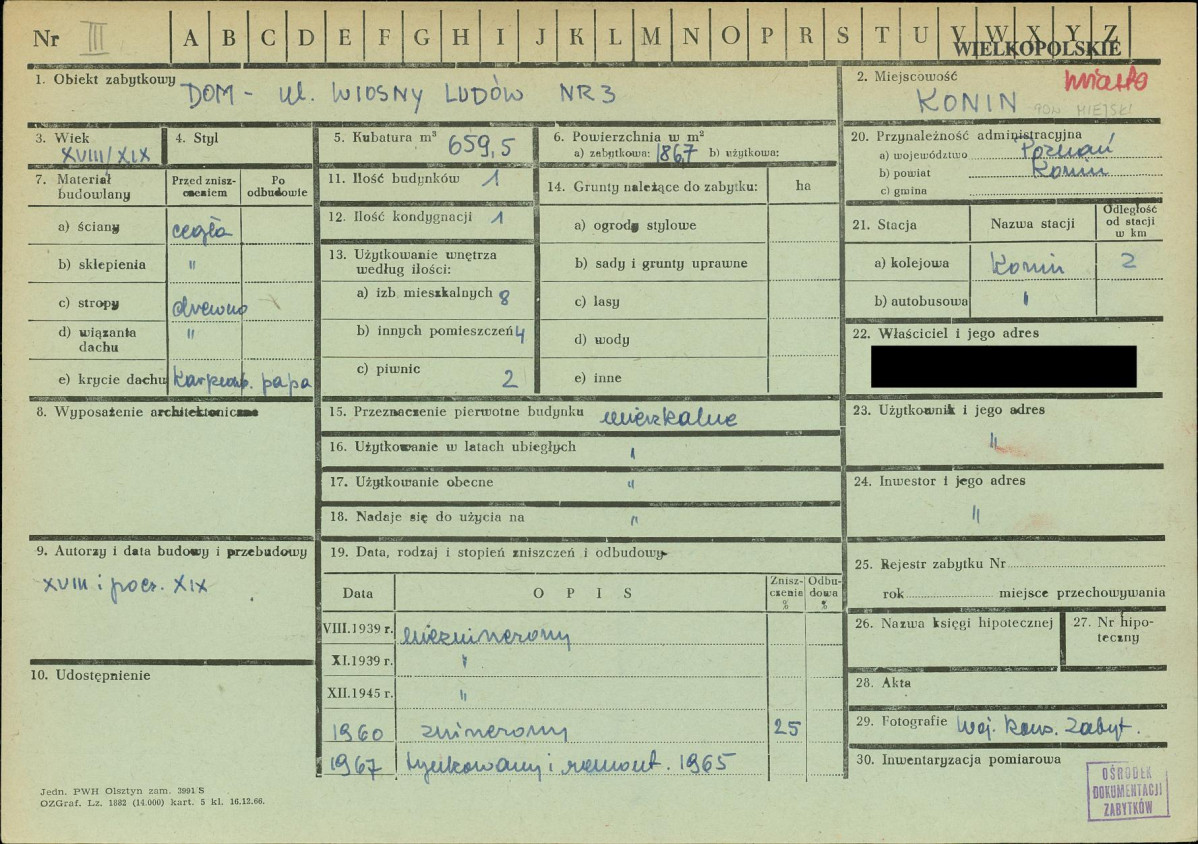 Nr III A B C D E F G H I J K L M N O P R S T U V W X Y Z
WIELKOPOLSKIE
1. Obiekt zabytkowy DOM - ul. WIOSNY LUDÓW NR 3
2. Miejscowość miasto
KONIN POW MIEJSKI
3. Wiek XVIII/XIX
4. Styl
5. Kubatura m³ 659,5
6. Powierzchnia w m²
a) zabytkowa: 186,7 b) użytkowa:
7. Materiał budowlany
Przed zniszczeniem
Po odbudowie
a) ściany cegła
b) sklepienia "
c) stropy drewno
d) wiązania dachu "
e) krycie dachu karpiówk. papa
8. Wyposażenie architektoniczne
9. Autorzy i data budowy i przebudowy
XVIII i pocz. XIX
10. Udostępnienie
11. Ilość budynków 1
12. Ilość kondygnacji 1
13. Użytkowanie wnętrza
według ilości:
a) izb mieszkalnych 8
b) innych pomieszczeń 4
c) piwnic 2
14. Grunty należące do zabytku: ha
a) ogrody stylowe
b) sady i grunty uprawne
c) lasy
d) wody
e) inne
15. Przeznaczenie pierwotne budynku mieszkalne
16. Użytkowanie w latach ubiegłych "
17. Użytkowanie obecne "
18. Nadaje się do użycia na "
19. Data, rodzaj i stopień zniszczeń i odbudowy
Data OPIS Zniszczenie % Odbudowa %
VIII.1939 r. niezniszczony
XI.1939 r. "
XII.1945 r. "
1960 zniszczony 25
1967 tynkowany i remont. 1965
20. Przynależność administracyjna
a) województwo Poznań
b) powiat Konin
c) gmina
21. Stacja Nazwa stacji Odległość od stacji w km
a) kolejowa Konin 2
b) autobusowa "
22. Właściciel i jego adres
23. Użytkownik i jego adres
"
24. Inwestor i jego adres
"
25. Rejestr zabytku Nr
rok miejsce przechowywania
26. Nazwa księgi hipotecznej
27. Nr hipoteczny
28. Akta
29. Fotografie Woj. Kons. Zabyt.
30. Inwentaryzacja pomiarowa
OŚRODEK
DOKUMENTACJI
ZABYTKÓW
Jedn. PWH Olsztyn zam. 3991 S
OZGraf. Lz. 1882 (14.000) kart. 5 kl. 16.12.66.